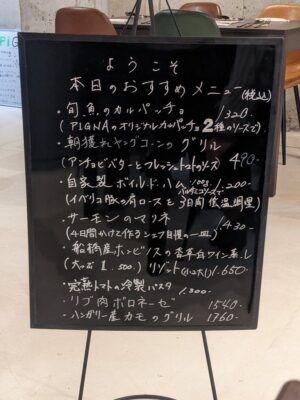 ようこそ
本日のおすすめメニュー(税込)
・旬魚のカルパッチョ 1320
(PIGNAのオリジナルカルパッチョ2種のソースで)
・朝獲れヤングコーンのグリル
(アンチョビバターとフレッシュトマトのソース) 490-
・自家製ボイルハム 100g 1,200-
(イベリコ豚の肩ロースを3日間低温調理)
・サーモンのマリネ 1430-
(4日間かけて作るシェフ自慢の一皿)
・船橋産ホンビノスの香草白ワイン蒸し
(大つぶ 1,500.) リゾット 1.650-
・完熟トマトの冷製パスタ 1.300-
・リブ肉ボロネーゼ 1540-
・ハンガリー産カモのグリル 1760-